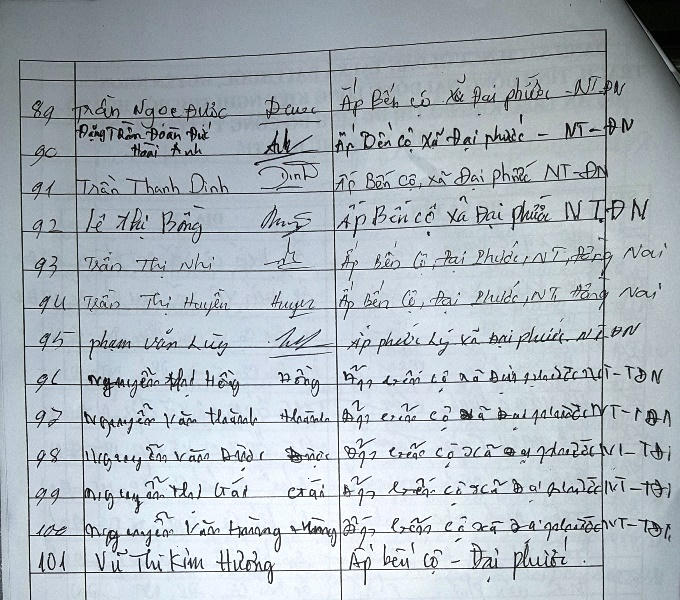 89 Trần Ngọc Được Được Ấp Bến cộ xã Đại phước - NT-ĐN
90 Đặng Trần Đoàn Đức Hoài Anh Ấp Bến Cộ xã Đại phước - NT-ĐN
91 Trần Thanh Dinh Dinh Ấp Bến Cộ, xã Đại phước NT-ĐN
92 Lê Thị Bông Ấp Bến cộ xã Đại phước NT.ĐN
93 Trần Thị Nhi Ấp Bến Cộ, Đại Phước, NT, Đồng Nai
94 Trần Thị Huyền Huyền Ấp Bến Cộ, Đại Phước, NT, Đồng Nai
95 phạm văn Lũy Ấp phước Lý xã Đại phước. NT.ĐN
96 Nguyễn thị Hồng Hồng cộ xã Đại phước NT-TĐN
97 Nguyễn văn thành thành cộ xã Đại phước NT-TĐN
98 Nguyễn văn Được Được cộ xã Đại phước NT-TĐ
99 Nguyễn thị cộ xã Đại phước NT-TĐ
100 Nguyễn văn cộ xã Đại phước NT-TĐ
101 Vũ Thị Kim Hương Ấp bến cộ - Đại phước.